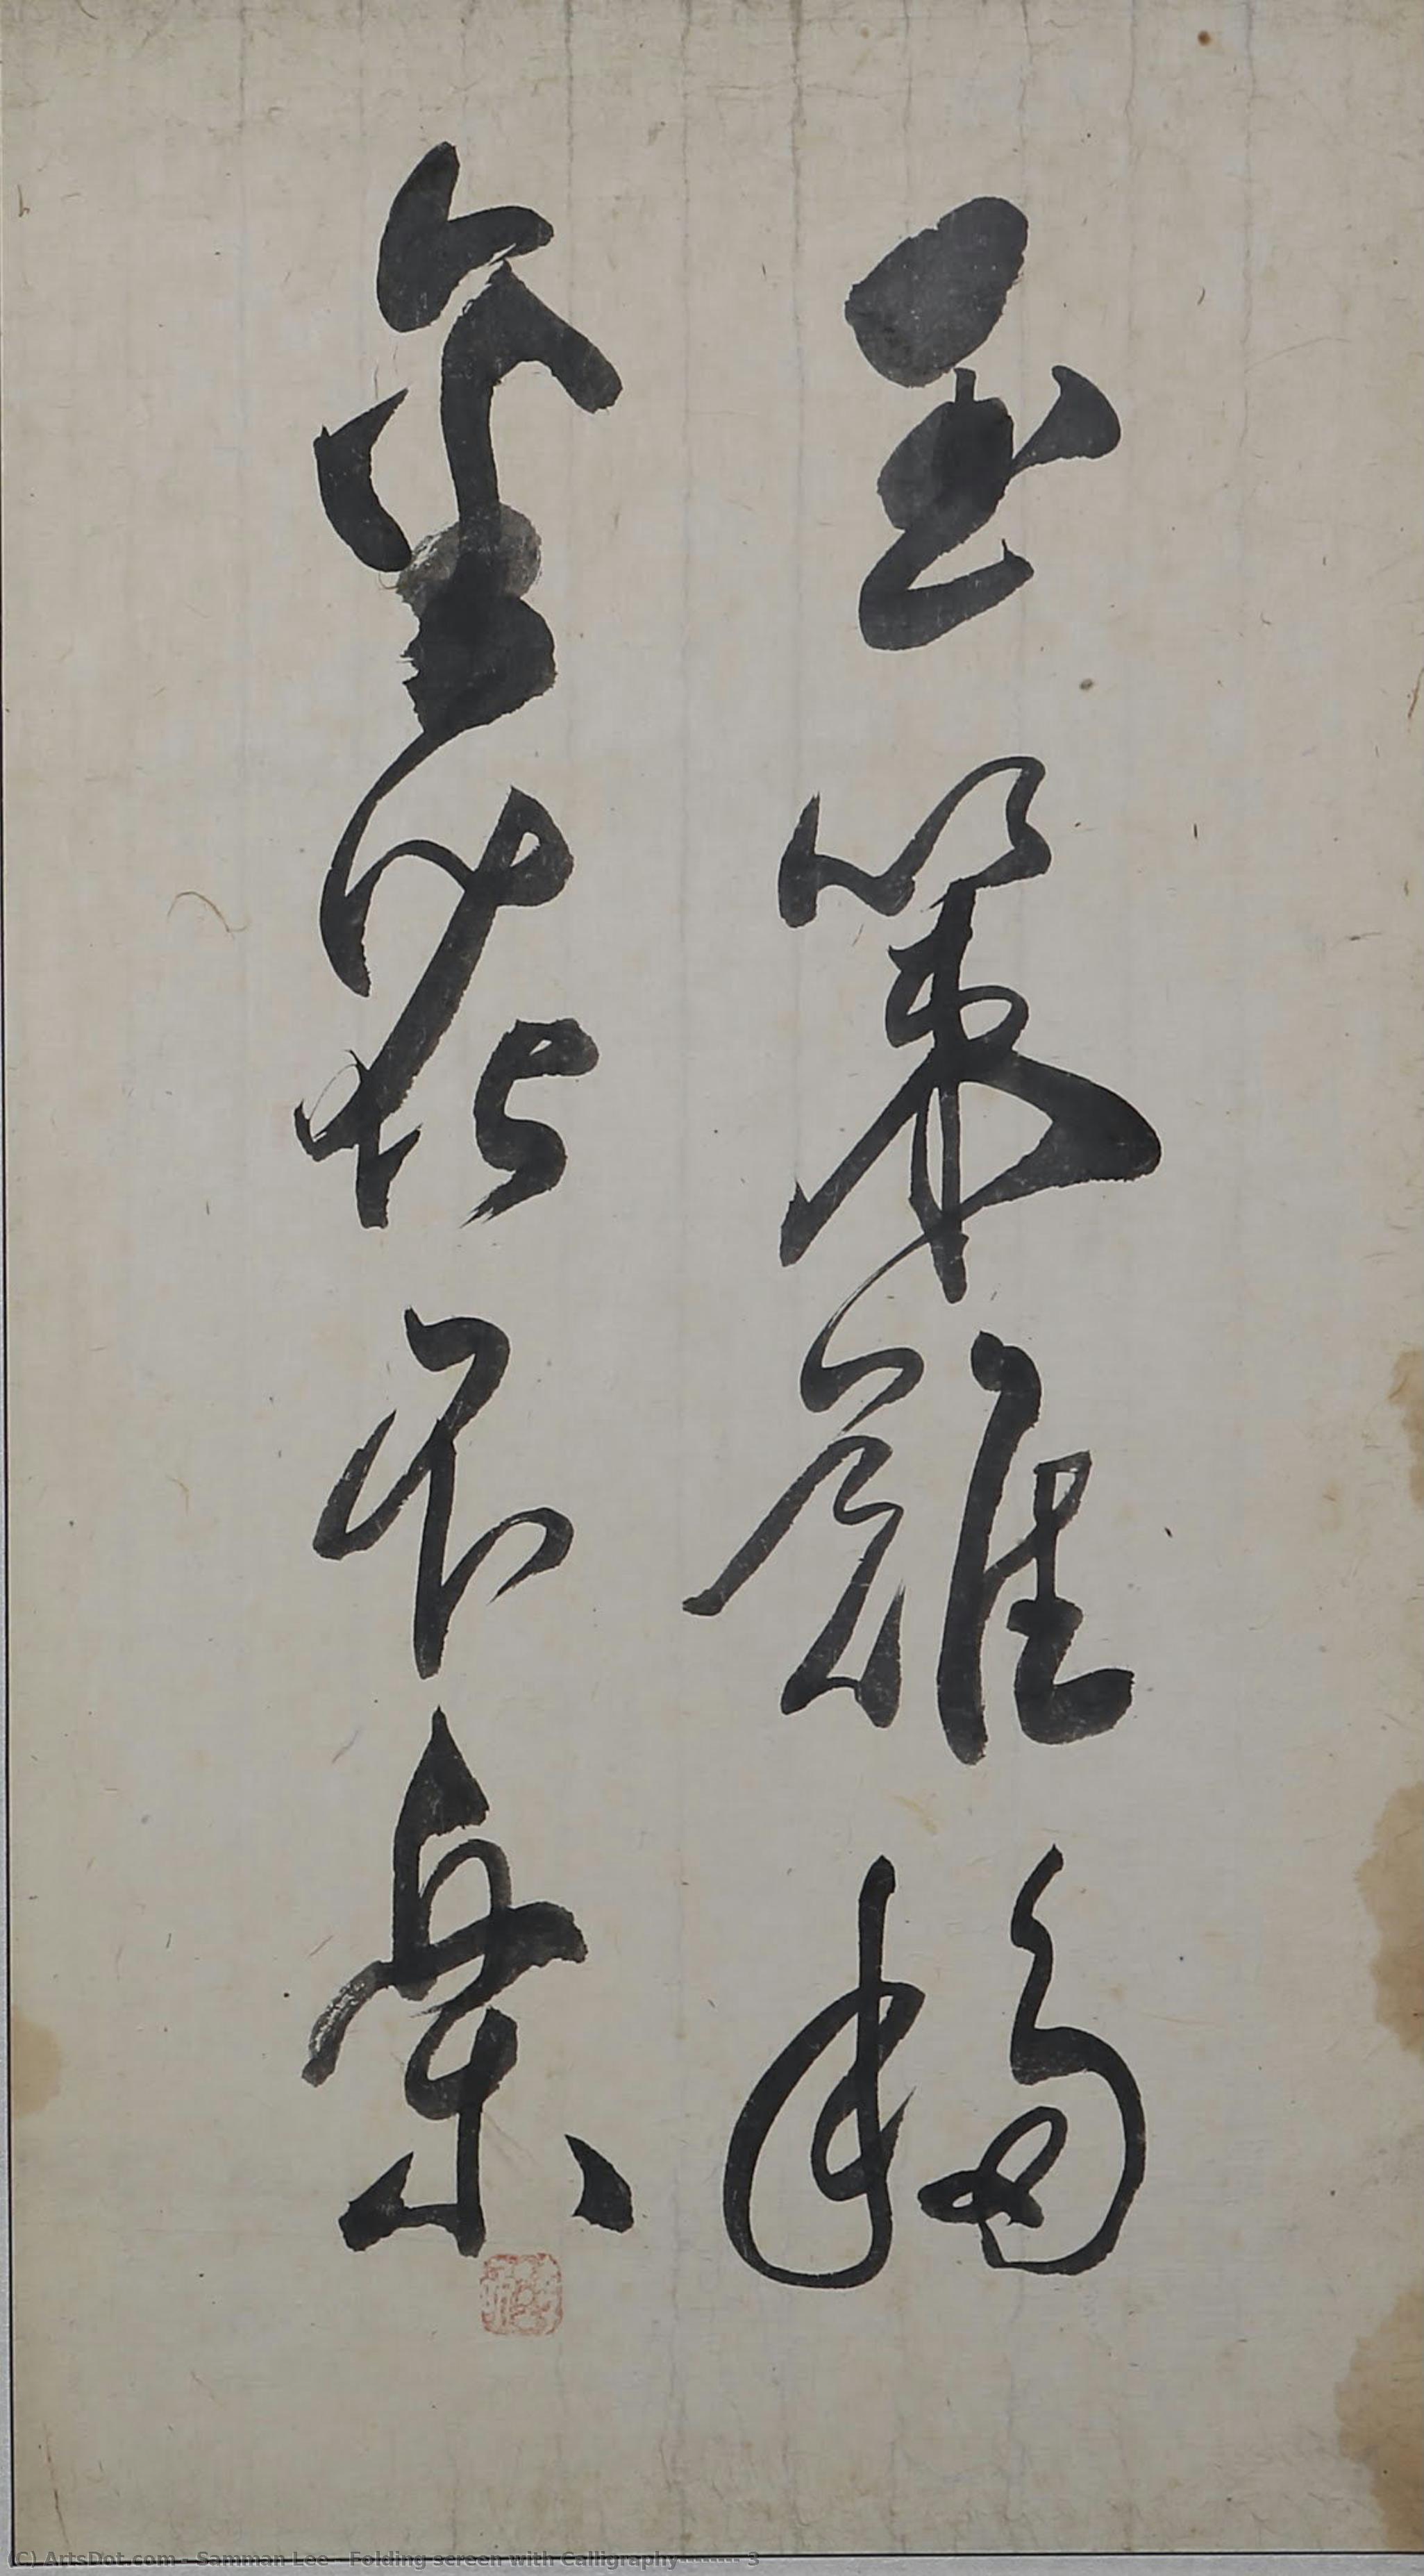 玉策難移
金花不榮
(C) ArtsDot.com - Samman Lee - Folding screen with Calligraphy-------- 3